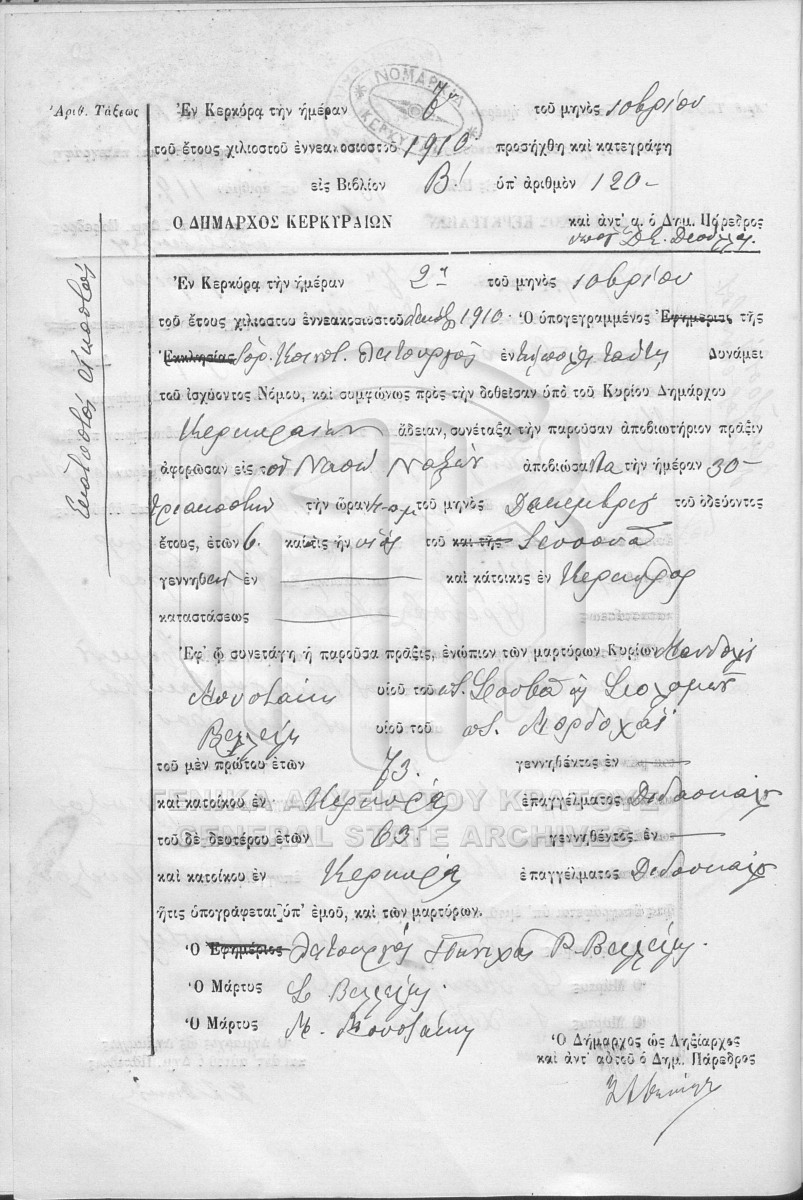 ΝΟΜΑΡΧΙΑ
ΚΕΡΚΥΡΑΣ
Ἀριθ. Τάξεως
Ἐν Κερκύρᾳ τὴν ἡμέραν 8ην τοῦ μηνὸς 10βρίου
τοῦ ἔτους χιλιοστοῦ ἐννεακοσιοστοῦ 1910 προσήχθη καὶ κατεγράφη
εἰς Βιβλίον Β' ὑπ' ἀριθμὸν 120
Ο ΔΗΜΑΡΧΟΣ ΚΕΡΚΥΡΑΙΩΝ καὶ ἀντ' α. ὁ Δημ. Πάρεδρος
Ἑκατοστὸς εἰκοστὸς
Ἐν Κερκύρᾳ τὴν ἡμέραν 2α τοῦ μηνὸς 10βρίου
τοῦ ἔτους χιλιοστοῦ ἐννεακοσιοστοῦ 1910 Ὁ ὑπογεγραμμένος Ἐφημέριος τῆς
Ἐκκλησίας Ἰσρ. Κοινοτ. Λειτουργὸς ἐν τῇ πόλει ταύτῃ Δυνάμει
τοῦ ἰσχύοντος Νόμου, καὶ συμφώνως πρὸς τὴν δοθεῖσαν ὑπὸ τοῦ Κυρίου Δημάρχου
Κερκυραίων ἄδειαν, συνέταξα τὴν παροῦσαν ἀποβιωτήριον πρᾶξιν
ἀφορῶσαν εἰς τὸν ἀποβιώσαντα τὴν ἡμέραν 30
τριακοστὴν τὴν ὥραν τοῦ μηνὸς τοῦ ὁδεύοντος
ἔτους, ἐτῶν 6 καὶ τις ἦν υἱὸς τοῦ καὶ τῆς
γεννηθεὶς ἐν καὶ κάτοικος ἐν Κερκύρᾳ
καταστάσεως
Ἐφ' ᾧ συνετάγη ἡ παροῦσα πρᾶξις, ἐνώπιον τῶν μαρτύρων Κυρίων
Μουστάκη υἱοῦ τοῦ ποτ. ἢ Σολομὼν
Βελλέλη υἱοῦ τοῦ ποτ. Μορδοχάϊ
τοῦ μὲν πρώτου ἐτῶν 73 γεννηθέντος ἐν
καὶ κατοίκου ἐν Κερκύρᾳ ἐπαγγέλματος Διδασκάλου
ΓΕΝΙΚΑ ΑΡΧΕΙΑ ΤΟΥ ΚΡΑΤΟΥΣ
τοῦ δὲ δευτέρου ἐτῶν 63 γεννηθέντος ἐν
GENERAL STATE ARCHIVES
καὶ κατοίκου ἐν Κερκύρᾳ ἐπαγγέλματος Διδασκάλου
ἥτις ὑπογράφεται ὑπ' ἐμοῦ, καὶ τῶν μαρτύρων.
Ὁ Ἐφημέριος Λειτουργὸς Ρ. Βελλέλης
Ὁ Μάρτυς Σ. Βελλέλης
Ὁ Μάρτυς Μ. Μουστάκης
Ὁ Δήμαρχος ὡς Ληξίαρχος
καὶ ἀντ' αὐτοῦ ὁ Δημ. Πάρεδρος